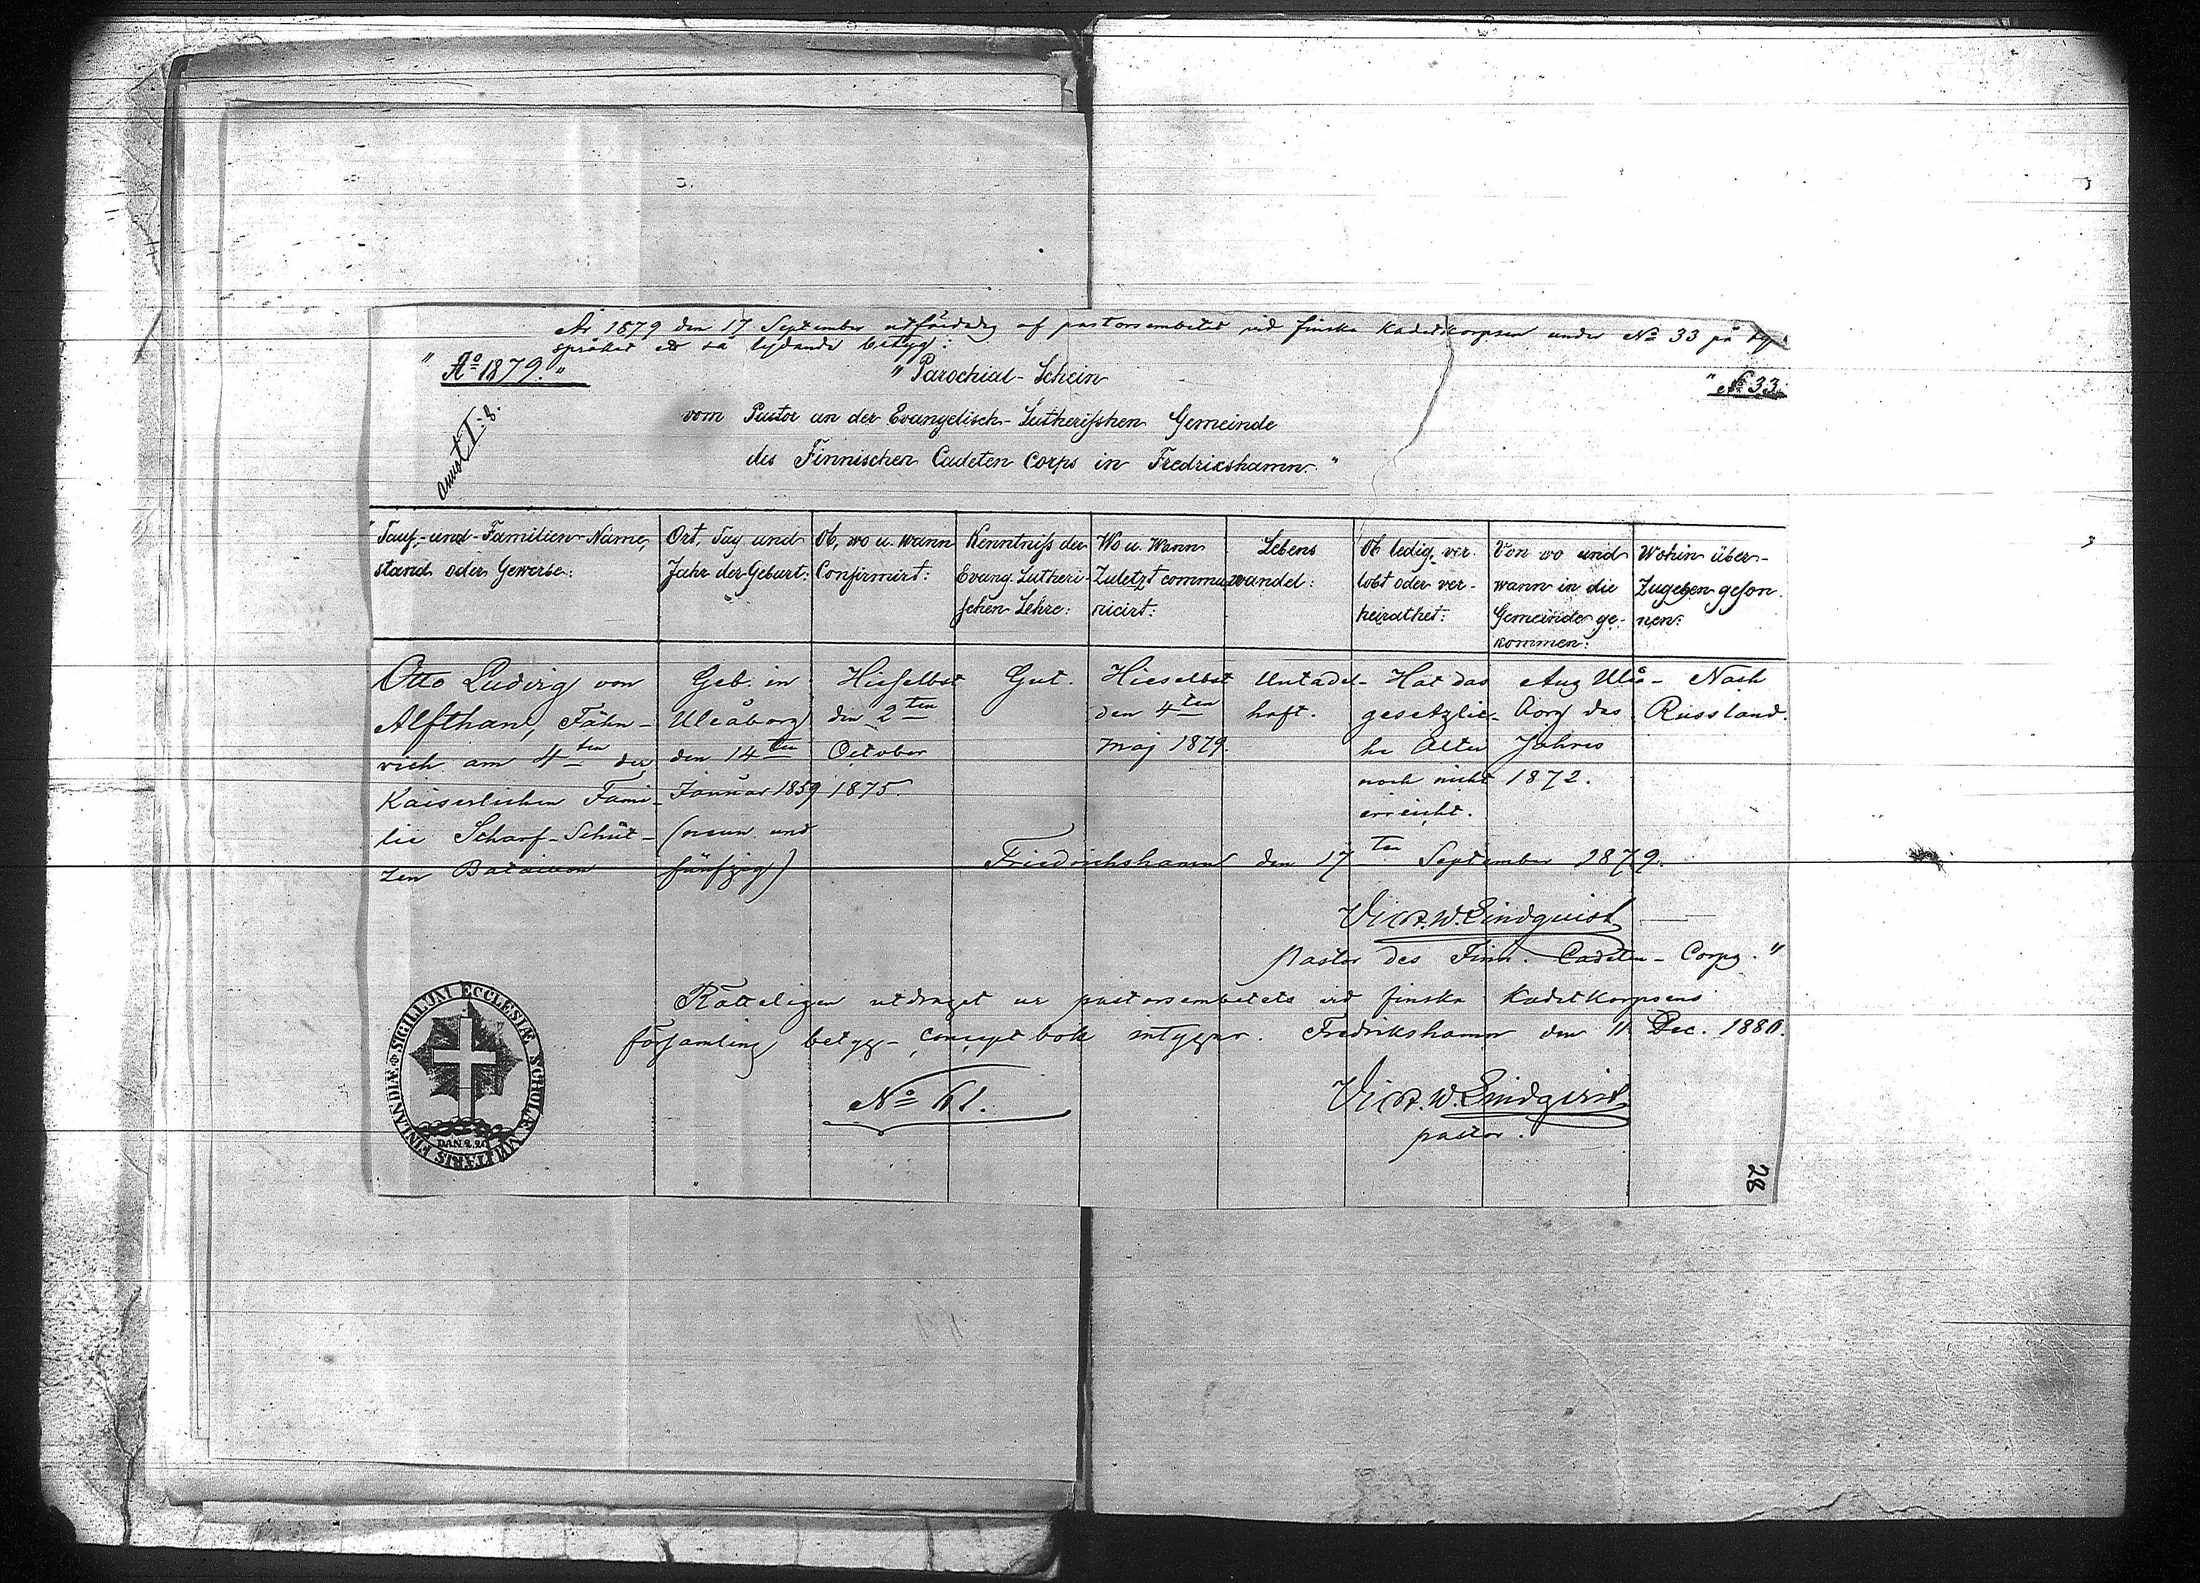 År 1879 den 17 September utfärdades af pastorsembetet vid finska Kadettkorpsen under No 33 på
språket så lydande betyg:
" Ao 1879. "
" Parochial-Schein
" No 33.
vom Pastor an der Evangelisch-Lutherischen Gemeinde
des Finnischen Cadeten Corps in Fredrikshamn "
Tauf-und-Familien-Name,
stand oder Gewerbe:
Ort, Tag und
Jahr der Geburt:
Ob, wo u. wann
Confirmirt:
Kenntniss der
Evang. Lutheri-
schen Lehre:
Wo u. Wann
Zuletzt commu-
nicirt:
Lebens
wandel:
Ob ledig, ver-
lobt oder ver-
heirathet:
Von wo und
wann in die
Gemeinde ge-
kommen:
Wohin über-
Zugehen geson-
nen:
Otto Ludvig von
Alfthan, Fähn-
rich am 4ten der
Kaiserlichen Fami-
lie Scharf-Schüt-
zen Bataillon
Geb. in
Uleåborg
den 14ten
Januar 1859
(neun und
fünfzig)
Hieselbst
den 2ten
October
1875.
Gut.
Hieselbst
den 4ten
Maj 1879.
Untadel-
haft.
Hat das
gesetzlic-
he Alter
noch nicht
erreicht.
Aus Uleå-
borg des
Jahres
1872.
Nach
Russland.
Friedrichshamn den 17ten September 1879.
Vict. W. Lindquist
Pastor des Finn. Cadeten-Corps. "
Rätteligen utdraget ur pastorsembetets vid finska Kadettkorpsens
församling betygs-conceptbok intygar. Fredrikshamn den 11 Dec. 1880.
No 61.
Vict. W. Lindquist
pastor.
SIGILLUM ECCLESIÆ SCHOLÆ MILITARIS FINLANDIÆ
28